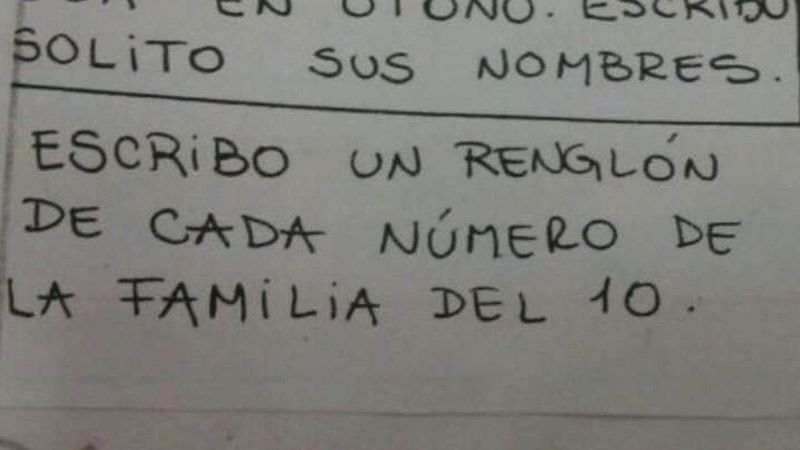 EN OTOÑO. ESCRIBO
SOLiTO SUS NOMBRES.
ESCRiBO UN RENGLÓN
DE CADA NÚMERO DE
LA FAMiLiA DEL 10.